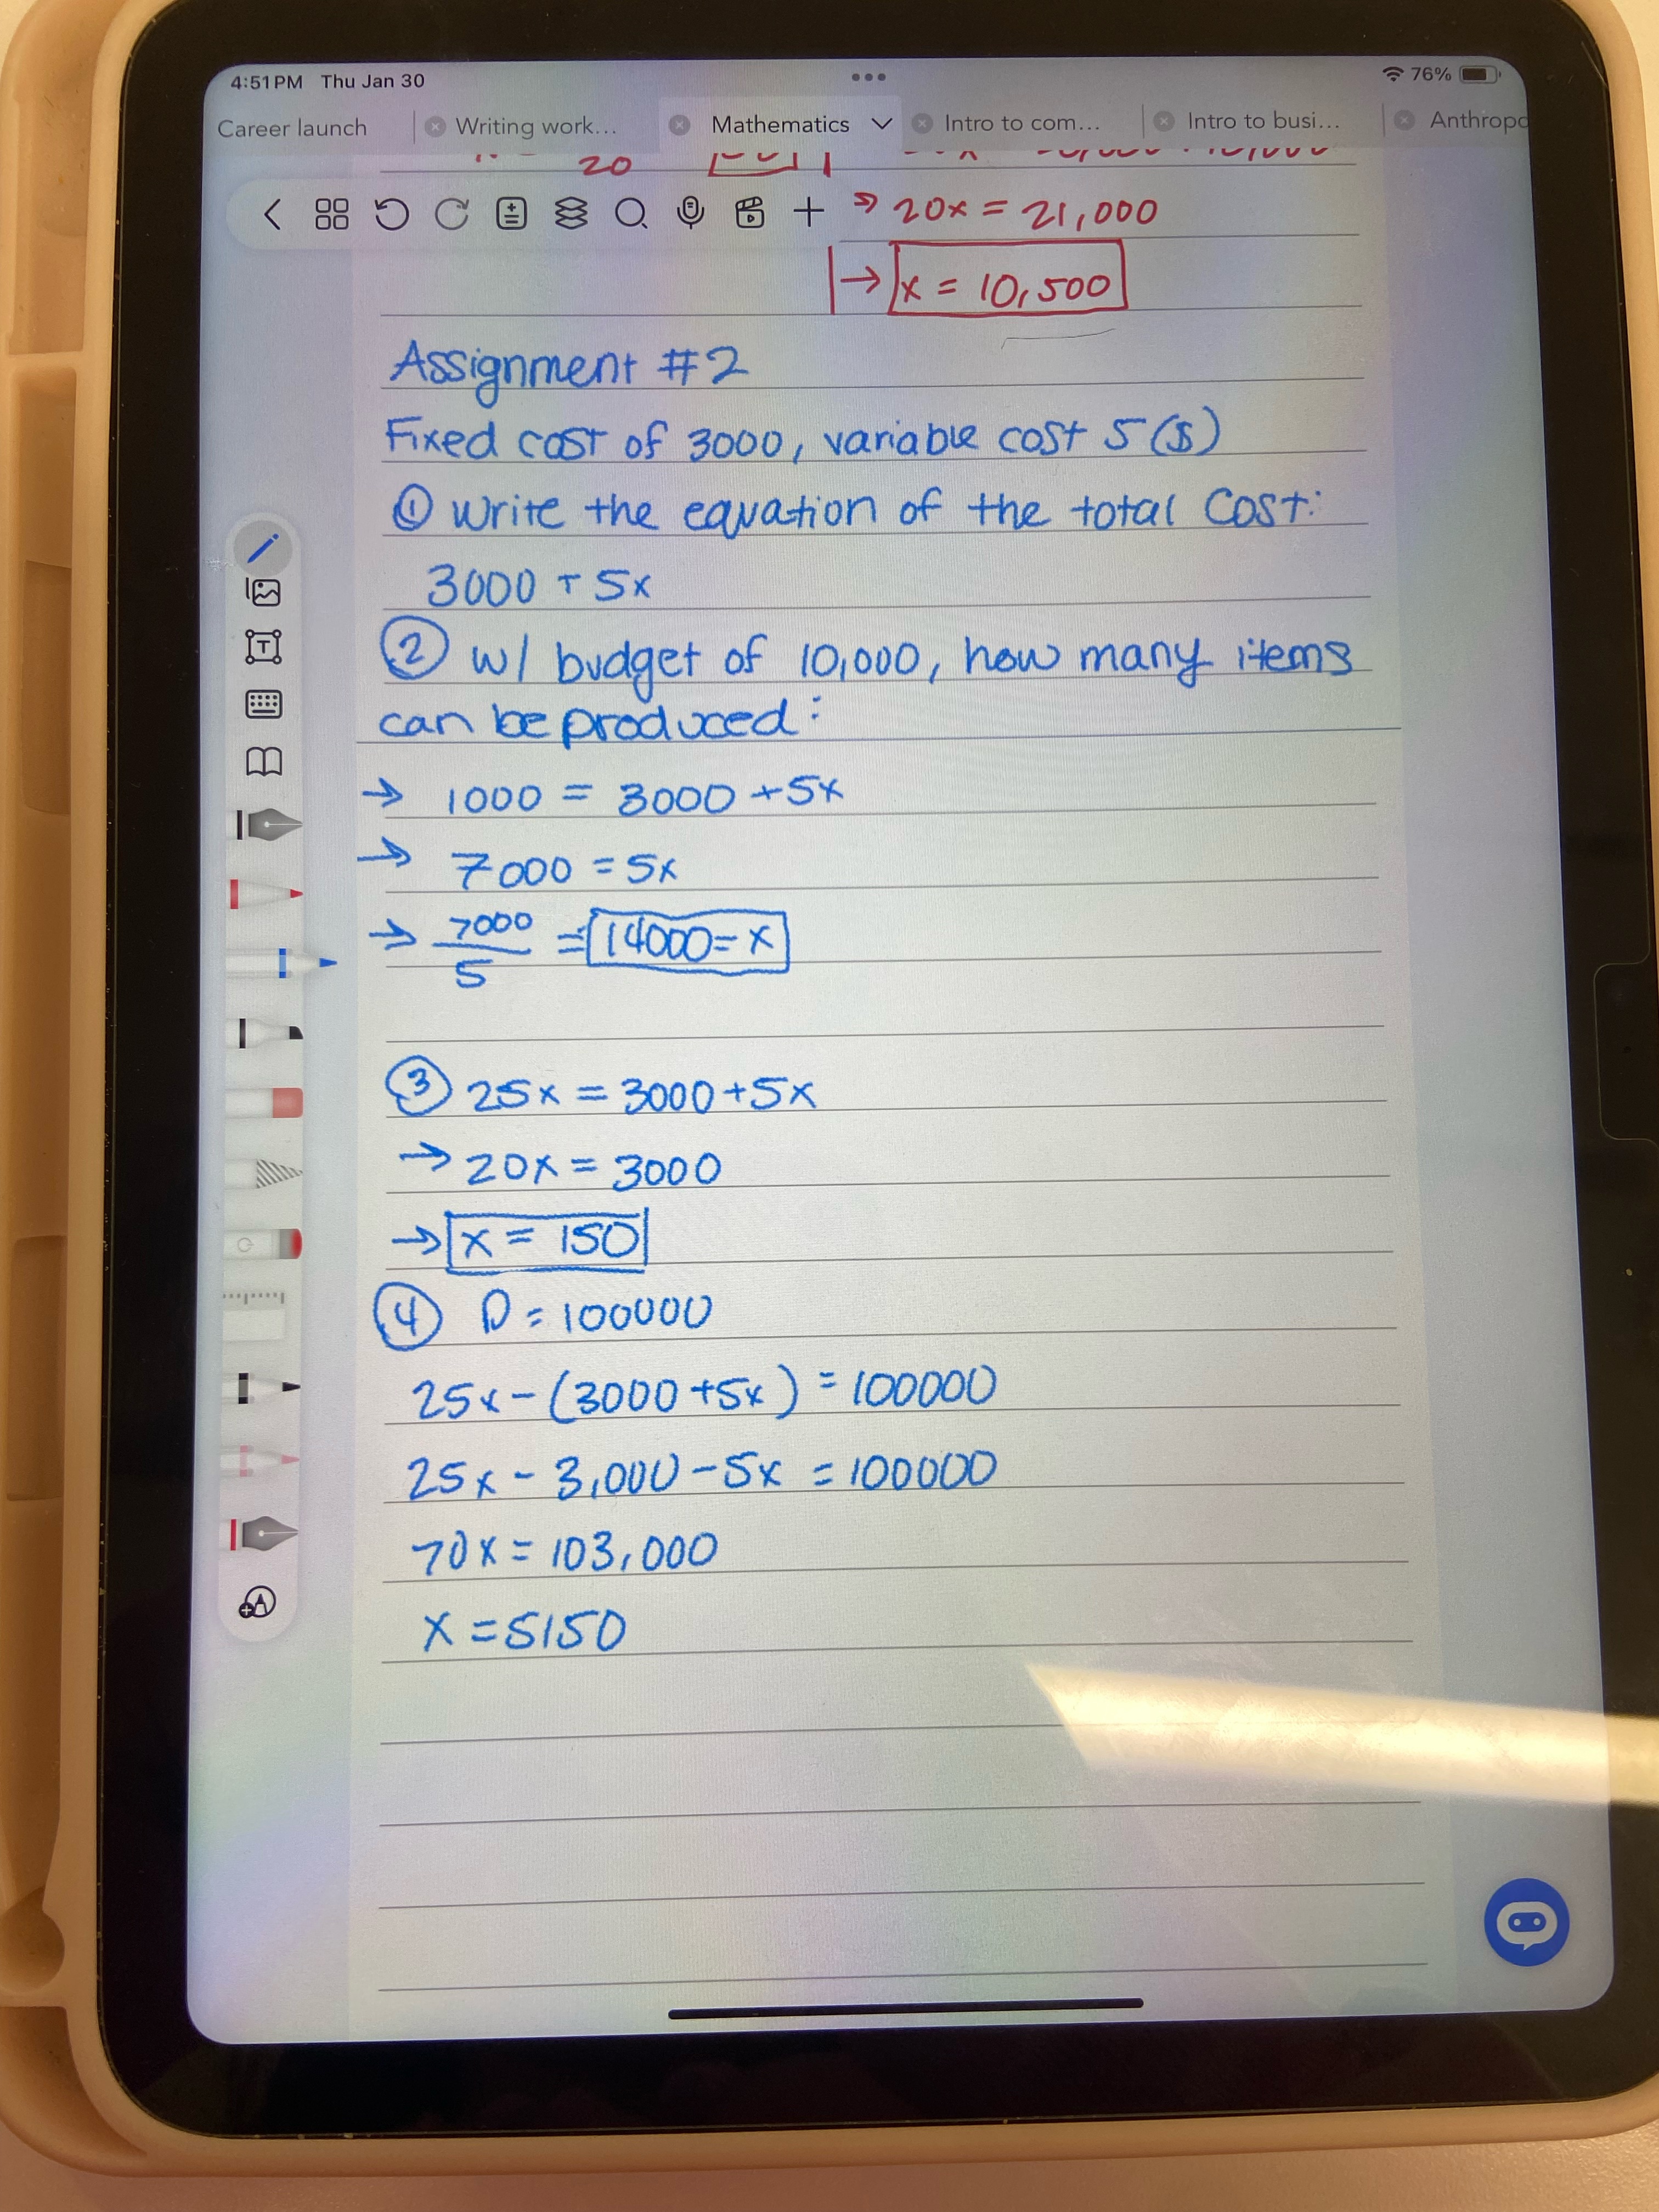 4:51 PM Thu Jan 30
76%
Career launch
Writing work...
Mathematics
Intro to com...
Intro to busi...
Anthropo
20
⇒ 20x = 21,000
→ x = 10,500
Assignment #2
Fixed cost of 3000, variable cost 5 ($)
① Write the equation of the total cost:
3000 + 5x
② w/ budget of 10,000, how many items
can be produced:
→ 1000 = 3000 + 5x
→ 7000 = 5x
→ 7000/5 = 14000 = x
③ 25x = 3000 + 5x
→ 20x = 3000
→ x = 150
④ D = 100000
25x - (3000 + 5x) = 100000
25x - 3,000 - 5x = 100000
70x = 103,000
x = 5150